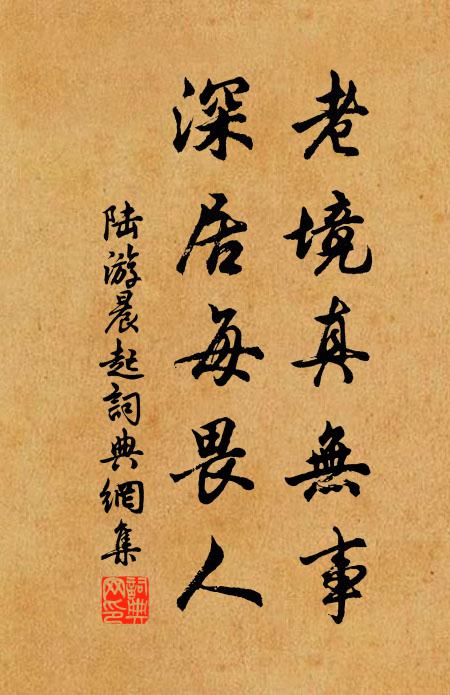 老境真無事
深居每畏人
陆游晨起詞典網集
詞典网印